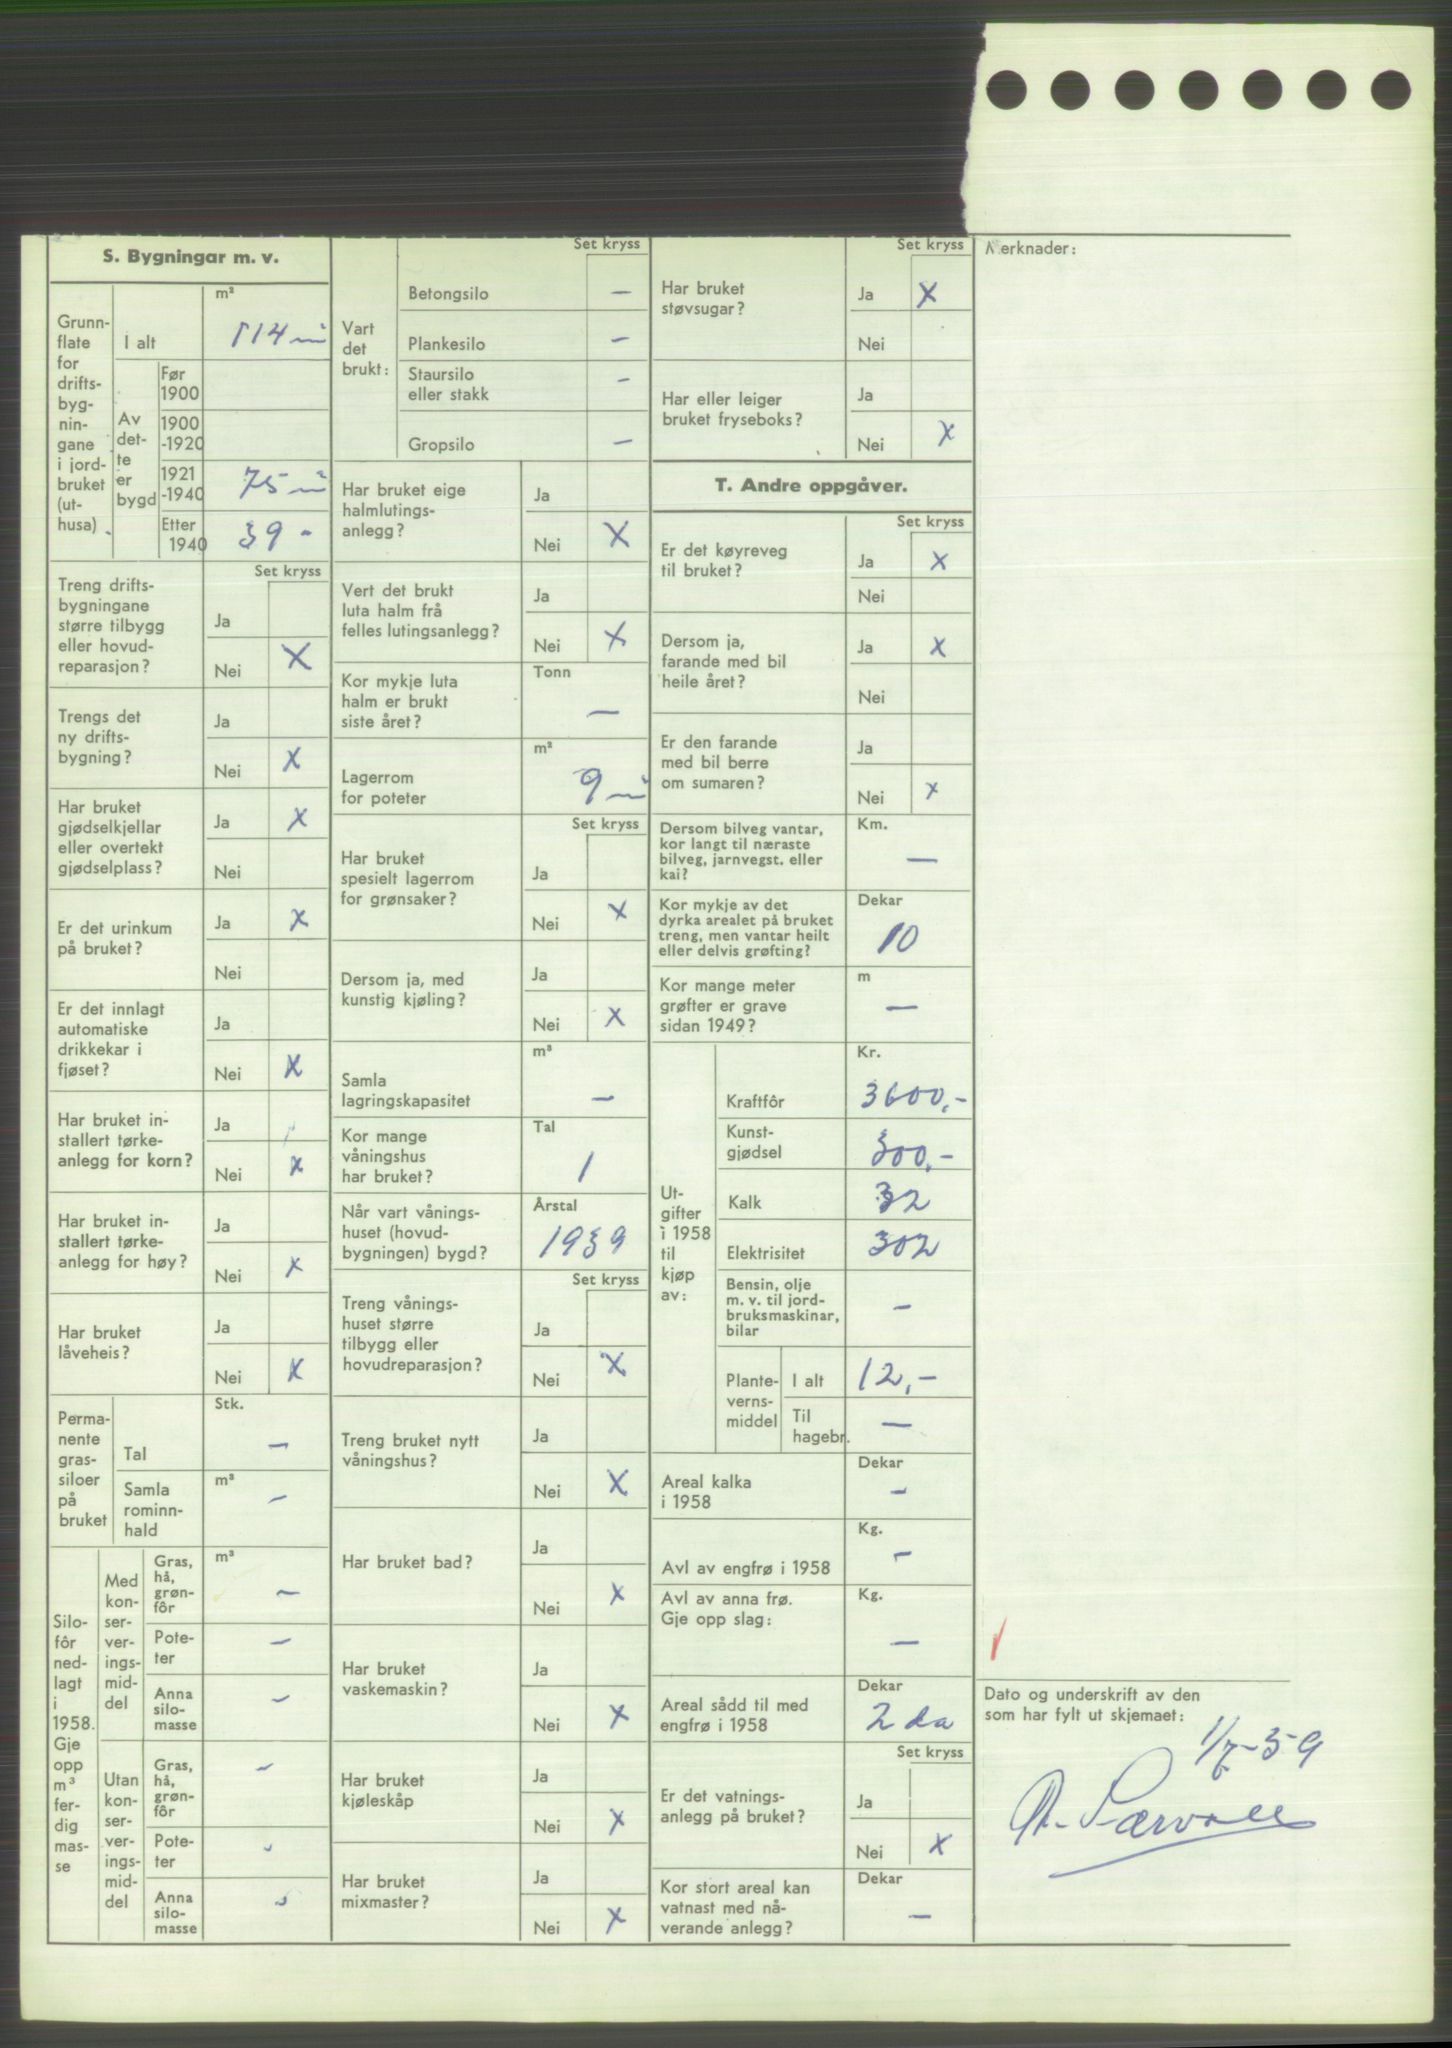 S. Bygningar m. v.
Grunn-
flate
for
drifts-
byg-
nin-
gane
i jord-
bruket
(ut-
husa)
m²
I alt 114 m²
Av
det-
te
er
bygd
Før
1900
1900
-1920
1921
-1940 75 m²
Etter
1940 39 -
Set kryss
Treng drifts-
bygningane
større tilbygg
eller hovud-
reparasjon?
Ja
Nei X
Trengs det
ny drifts-
bygning?
Ja
Nei X
Har bruket
gjødselkjellar
eller overtekt
gjødselplass?
Ja X
Nei
Er det urinkum
på bruket?
Ja X
Nei
Er det innlagt
automatiske
drikkekar i
fjøset?
Ja
Nei X
Har bruket in-
stallert tørke-
anlegg for korn?
Ja
Nei X
Har bruket in-
stallert tørke-
anlegg for høy?
Ja
Nei X
Har bruket
låveheis?
Ja
Nei X
Perma-
nente
gras-
siloer
på
bruket
Stk.
Tal –
m³
Samla
rominn-
hald –
Silo-
fôr
ned-
lagt
i
1958.
Gje
opp
m³
fer-
dig
mas-
se
Med
kon-
ser-
ver-
ings-
mid-
del
m³
Gras,
hå,
grøn-
fôr –
Pote-
ter –
Anna
silo-
masse –
Utan
kon-
ser-
ver-
ings-
mid-
del
Gras,
hå,
grøn-
fôr –
Pote-
ter -
Anna
silo-
masse -
Vart
det
brukt:
Set kryss
Betongsilo –
Plankesilo –
Staursilo
eller stakk –
Gropsilo –
Har bruket eige
halmlutings-
anlegg?
Ja
Nei X
Vert det brukt
luta halm frå
felles lutingsanlegg?
Ja
Nei X
Kor mykje luta
halm er brukt
siste året?
Tonn
–
Lagerrom
for poteter
m²
9 m²
Set kryss
Har bruket
spesielt lagerrom
for grønsaker?
Ja
Nei X
Dersom ja, med
kunstig kjøling?
Ja
Nei X
Samla
lagringskapasitet
m³
–
Kor mange
våningshus
har bruket?
Tal
1
Når vart vånings-
huset (hovud-
bygningen) bygd?
Årstal
1939
Set kryss
Treng vånings-
huset større
tilbygg eller
hovudreparasjon?
Ja
Nei X
Treng bruket nytt
våningshus?
Ja
Nei X
Har bruket bad?
Ja
Nei X
Har bruket
vaskemaskin?
Ja
Nei X
Har bruket
kjøleskåp
Ja
Nei X
Har bruket
mixmaster?
Ja
Nei X
Set kryss
Har bruket
støvsugar?
Ja X
Nei
Har eller leiger
bruket fryseboks?
Ja
Nei X
T. Andre oppgåver.
Set kryss
Er det køyreveg
til bruket?
Ja X
Nei
Dersom ja,
farande med bil
heile året?
Ja X
Nei
Er den farande
med bil berre
om sumaren?
Ja
Nei X
Dersom bilveg vantar,
kor langt til næraste
bilveg, jarnvegst. eller
kai?
Km.
–
Kor mykje av det
dyrka arealet på bruket
treng, men vantar heilt
eller delvis grøfting?
Dekar
10
Kor mange meter
grøfter er grave
sidan 1949?
m
–
Ut-
gifter
i 1958
til
kjøp
av:
Kr.
Kraftfôr 3600,-
Kunst-
gjødsel 300,-
Kalk 32
Elektrisitet 302
Bensin, olje
m. v. til jord-
bruksmaskinar,
bilar –
Plante-
verns-
middel
I alt 12,-
Til
hagebr. –
Areal kalka
i 1958
Dekar
–
Avl av engfrø i 1958
Kg.
–
Avl av anna frø.
Gje opp slag:
Kg.
–
Areal sådd til med
engfrø i 1958
Dekar
2 da
Set kryss
Er det vatnings-
anlegg på bruket?
Ja
Nei X
Kor stort areal kan
vatnast med nå-
verande anlegg?
Dekar
–
Merknader:
Dato og underskrift av den
som har fylt ut skjemaet:
1/7-59